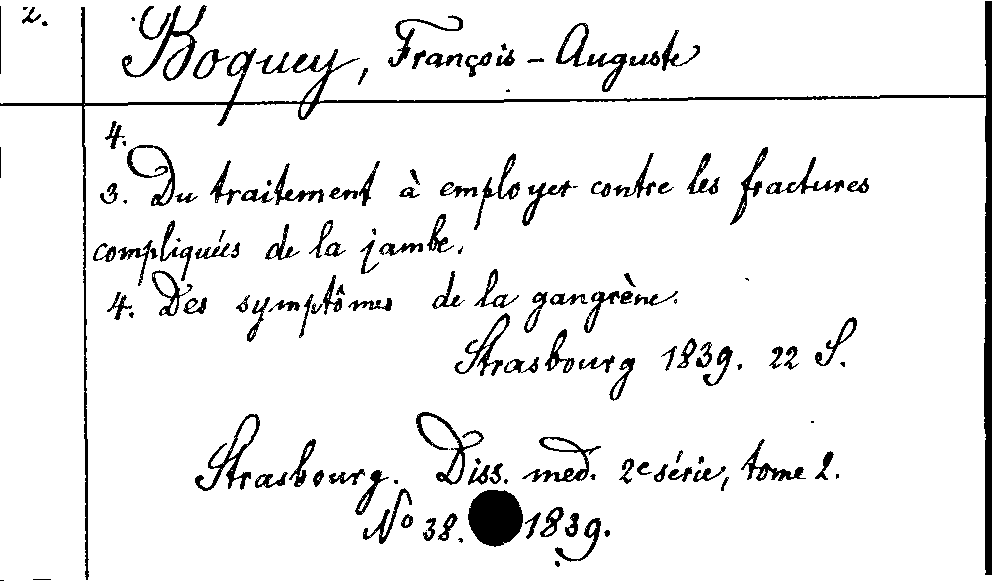 2.
Boquey, François - Auguste
4.
3. Du traitement à employer contre les fractures
compliquées de la jambe.
4. Des symptômes de la gangrène.
Strasbourg 1839. 22 S.
Strasbourg. Diss. med. 2e série, tome 2.
No 38. 1839.